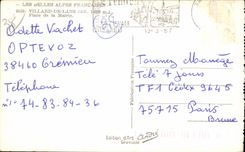 LES BELLES ALPES FRANÇAISES
VILLARD-DE-LANS
Place de la Mairie
12-3-87
Odette Vachet
OPTEVOZ
38460 Crémieu
Téléphone
74-83-84-36
Tournez Manège
Télé 7 Jours
TF1 Cedex 9645
75715 Paris
Brune
Edition d'Art
Grenoble